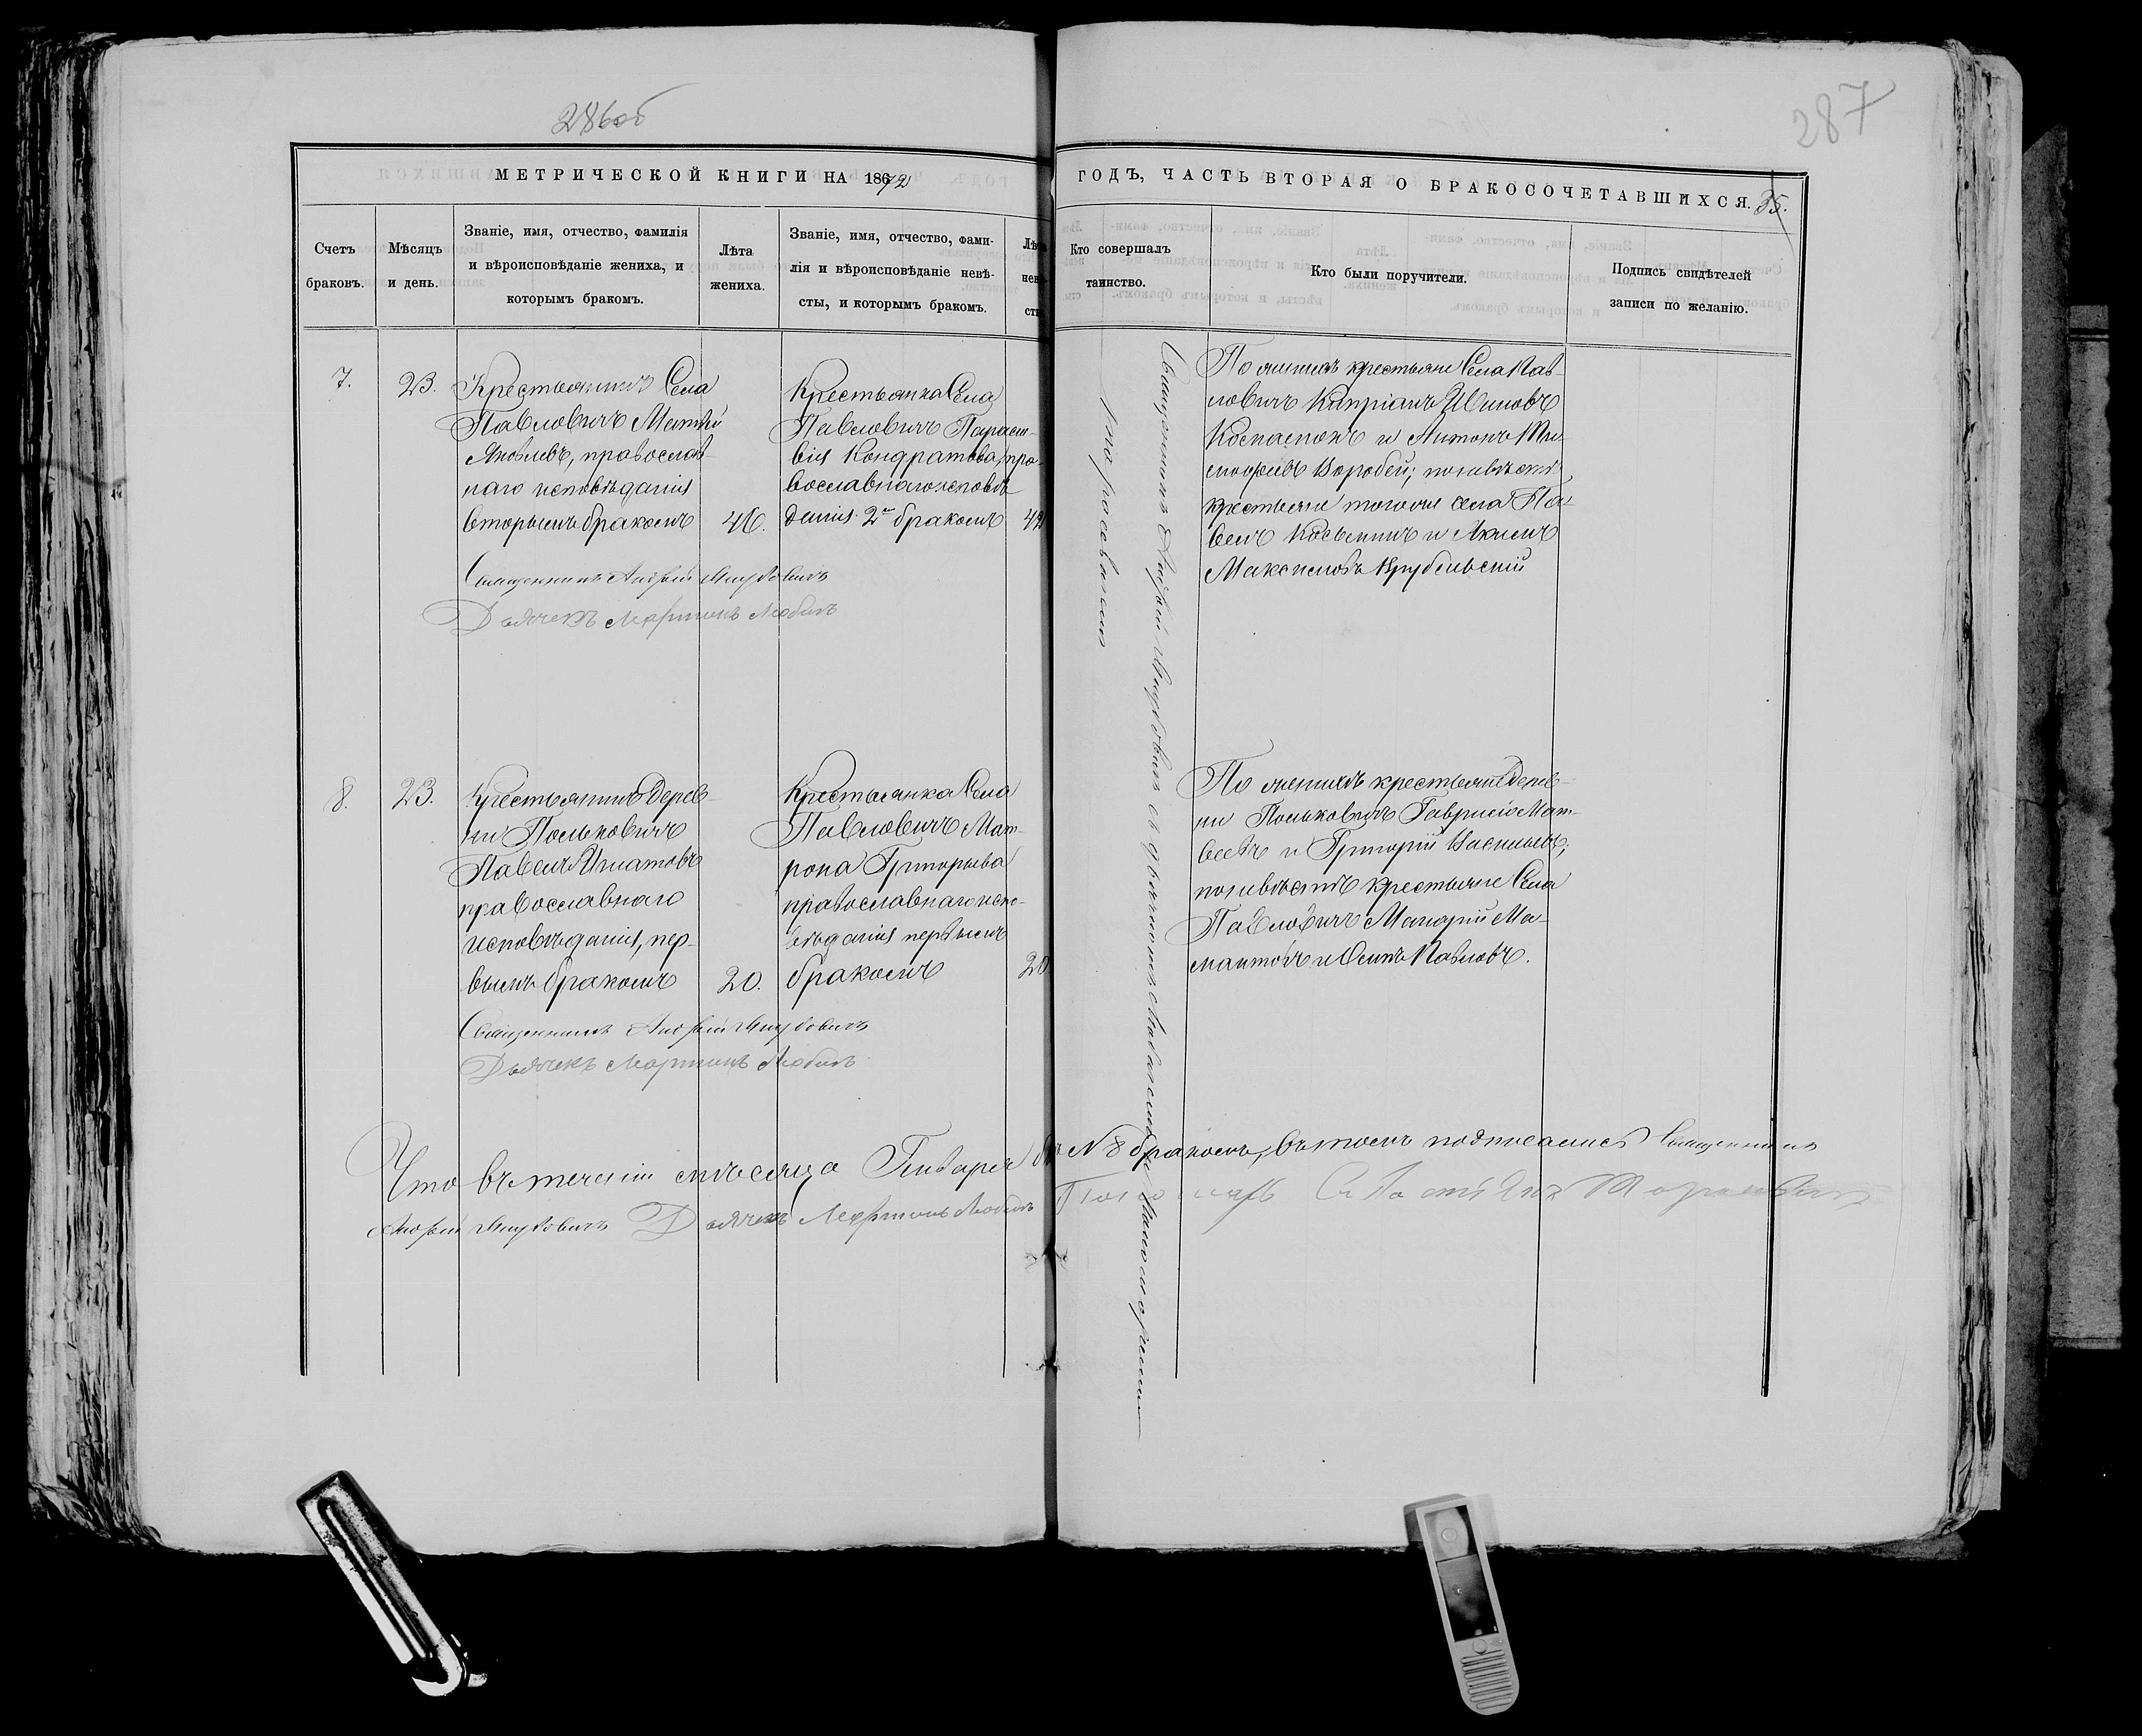 286об
287
МЕТРИЧЕСКОЙ КНИГИ НА 1872
ГОДЪ, ЧАСТЬ ВТОРАЯ О БРАКОСОЧЕТАВШИХСЯ. 35.
Счетъ
браковъ.
Мѣсяцъ
и день.
Званіе, имя, отчество, фамилія
и вѣроисповѣданіе жениха, и
которымъ бракомъ.
Лѣта
жениха.
Званіе, имя, отчество, фами-
лія и вѣроисповѣданіе невѣ-
сты, и которымъ бракомъ.
Лѣта
нев
сты
Кто совершалъ
таинство.
Кто были поручители.
Подпись свидѣтелей
записи по желанію.
7.
23.
Крестьянинъ Села
Павловичъ Матѳей
Яковлевъ, православ-
наго исповѣданія
вторымъ бракомъ
46.
Крестьянка Села
Павловичъ Параске-
вія Кондратова, пра-
вославнаго исповѣ-
данія 2мъ бракомъ
42
Священникъ Андрей
Дьячекъ Мартинъ Любичъ
По женихѣ крестьяне Села Пав-
ловичъ Кипріанъ Ивановъ
и Антонъ Ти-
мофеевъ Воробей; по невѣстѣ
крестьяне того же села Па-
велъ и Якимъ
Максимовъ
8.
23.
Крестьянинъ Дерев-
ни Польковичъ
Павелъ Игнатовъ
православнаго
исповѣданія, пер-
вымъ бракомъ
20.
Крестьянка Села
Павловичъ Мат-
рона Григорьева
православнаго испо-
вѣданія первымъ
бракомъ
20
Священникъ Андрей
Дьячекъ Мартинъ Любичъ
По женихѣ крестьяне Дерев-
ни Польковичъ Гавриилъ Мат-
веевъ и Григорій Васильевъ;
по невѣстѣ крестьяне Села
Павловичъ Макарій Ма-
мантовъ и Осипъ Павловъ.
Священникъ Андрей съ дьячкомъ Любичемъ и пономаремъ
Что въ теченіи мѣсяца Генваря № 8 бракомъ, въ томъ подписались Священникъ
Андрей Дьячекъ Мартинъ Любичъ Пономарь